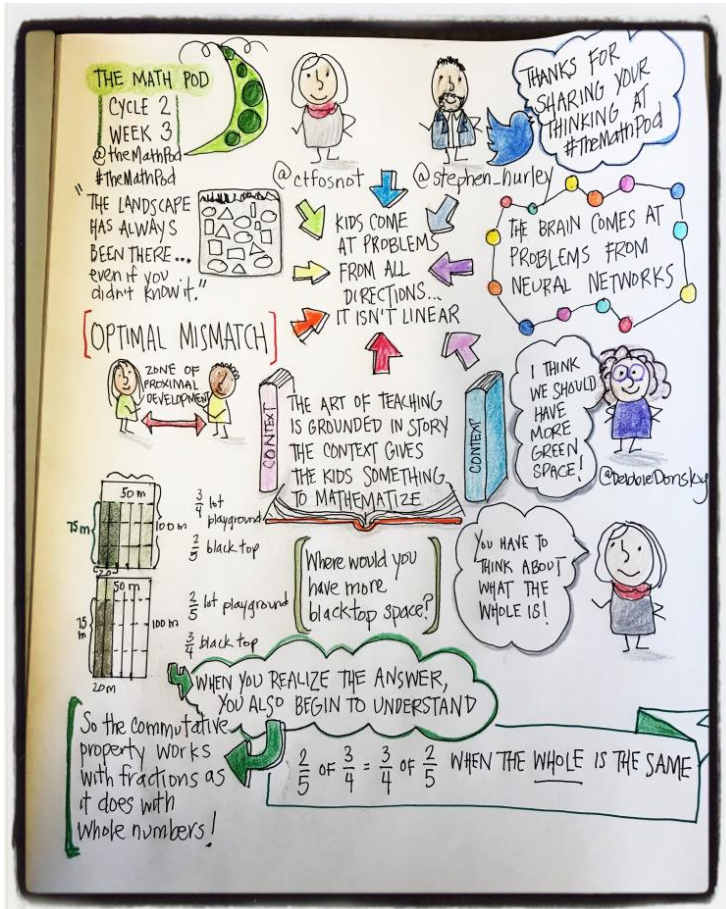 THE MATH POD
CYCLE 2
WEEK 3
@theMathPod
#TheMathPod
@ctfosnot
@stephen_hurley
THANKS FOR
SHARING YOUR
THINKING AT
#TheMathPod
"THE LANDSCAPE
HAS ALWAYS
BEEN THERE...
even if you
didn't know it."
KIDS COME
AT PROBLEMS
FROM ALL
DIRECTIONS...
IT ISN'T LINEAR
THE BRAIN COMES AT
PROBLEMS FROM
NEURAL NETWORKS
[OPTIMAL MISMATCH]
ZONE OF
PROXIMAL
DEVELOPMENT
CONTEXT
THE ART OF TEACHING
IS GROUNDED IN STORY
THE CONTEXT GIVES
THE KIDS SOMETHING
TO MATHEMATIZE
CONTEXT
I THINK
WE SHOULD
HAVE
MORE
GREEN
SPACE!
@DebbieDonsky
50 m
75m
100m
20
3/4 lot
playground
2/5 black top
50 m
75
m
100 m
20m
2/5 lot playground
3/4 black top
[Where would you
have more
blacktop space?]
YOU HAVE TO
THINK ABOUT
WHAT THE
WHOLE IS!
WHEN YOU REALIZE THE ANSWER,
YOU ALSO BEGIN TO UNDERSTAND
So the commutative
property works
with fractions as
it does with
whole numbers!
2/5 OF 3/4 = 3/4 OF 2/5 WHEN THE WHOLE IS THE SAME